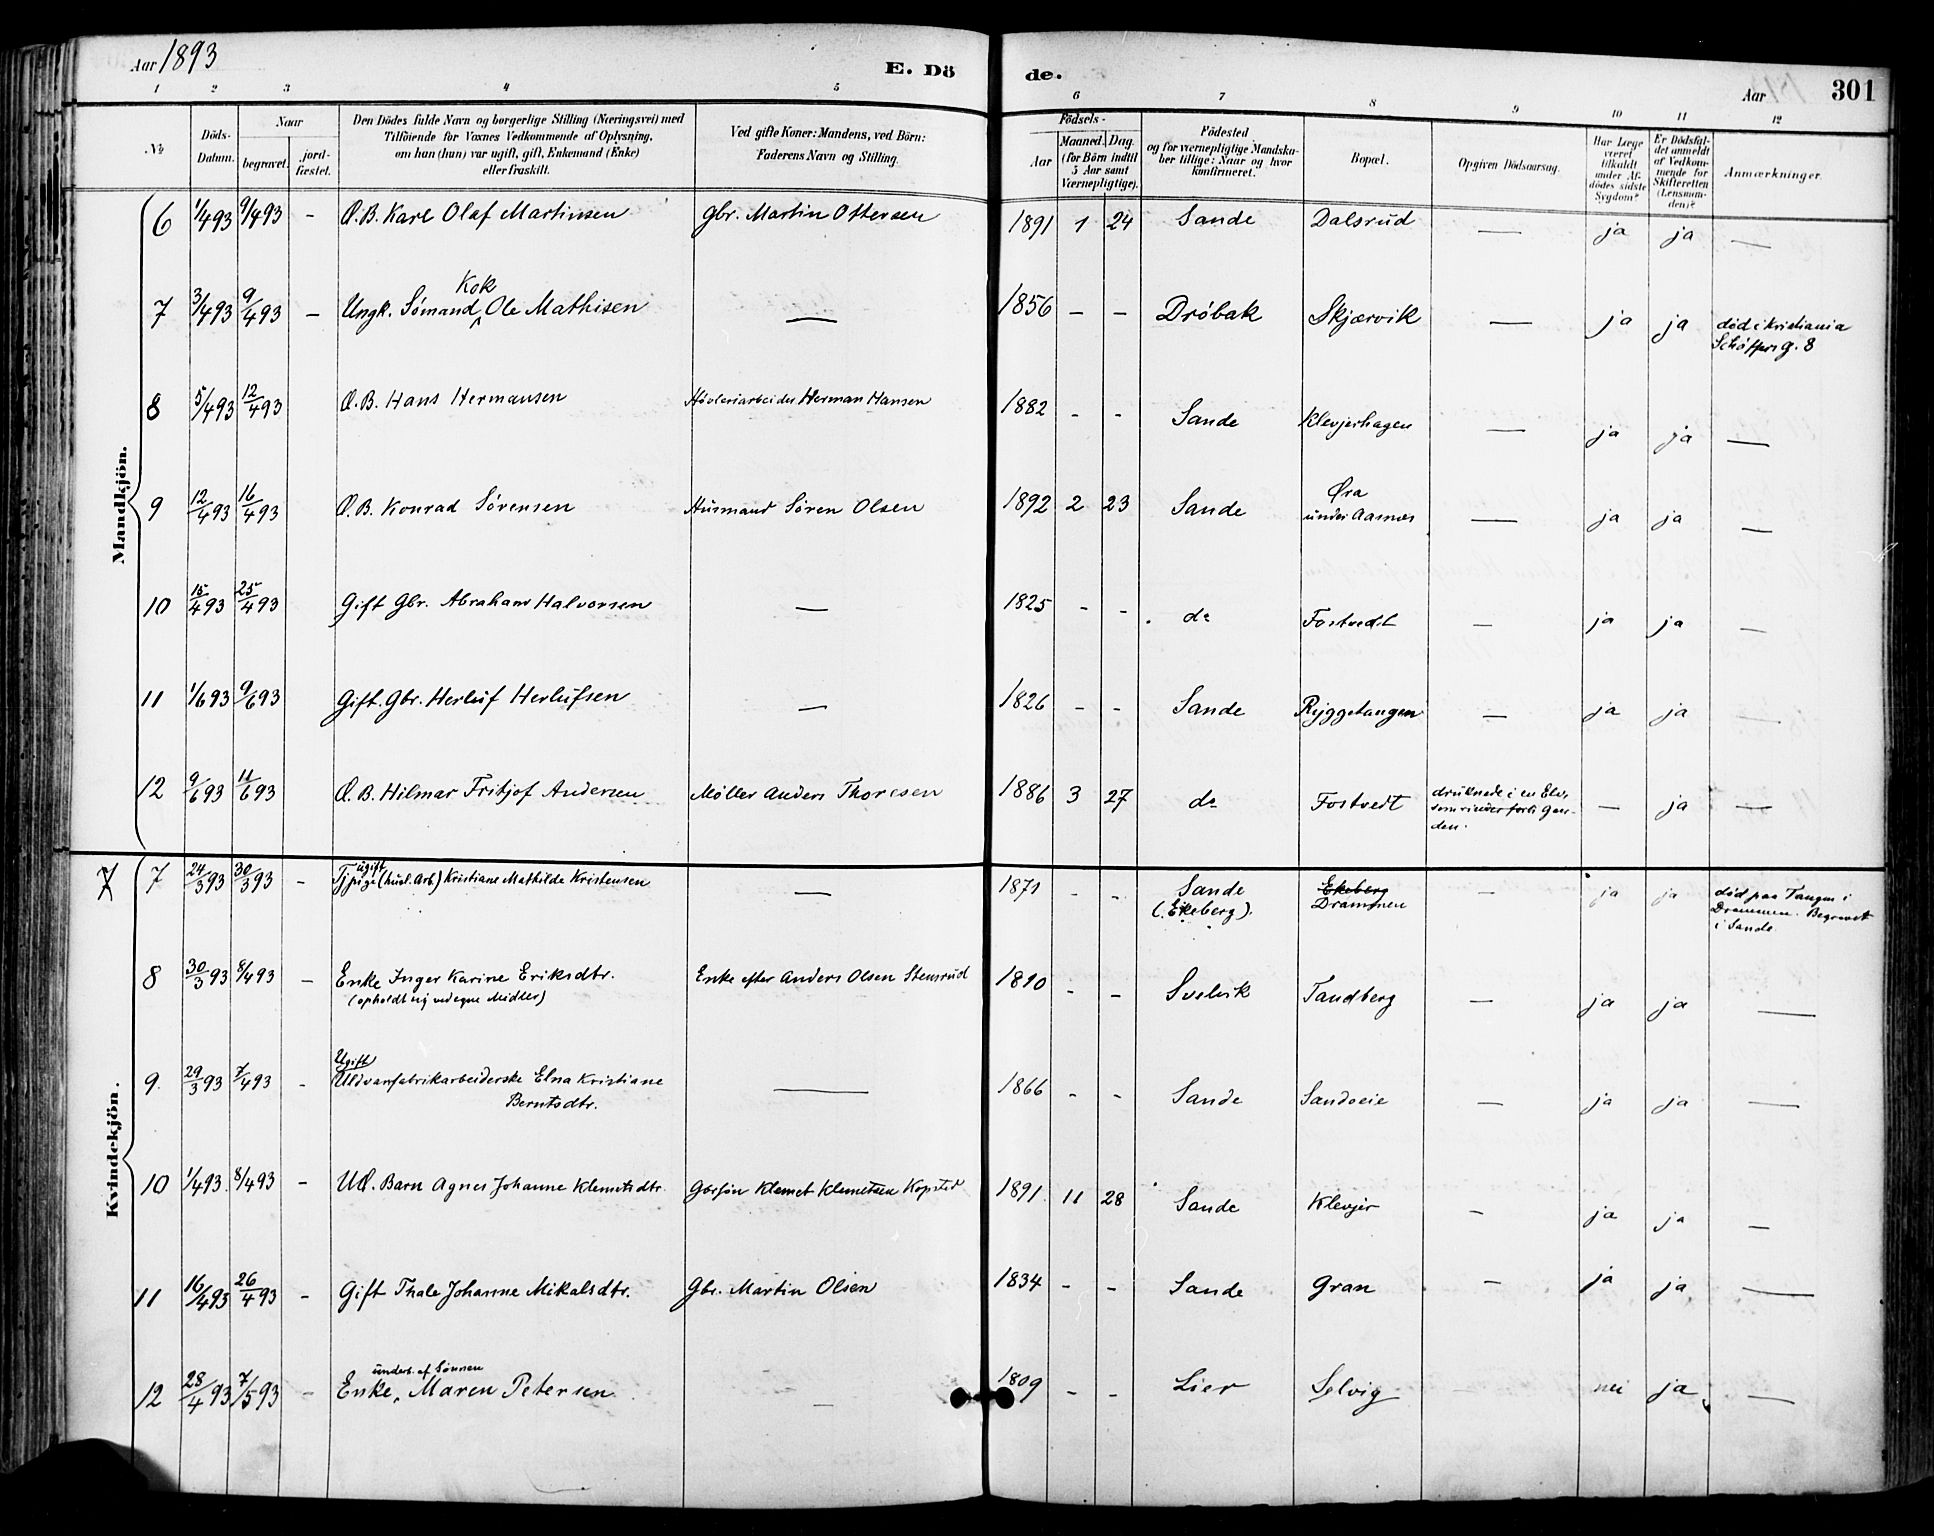 Aar 1893
E. Dö
de.
Aar
301
1 2 3 4 5 6 7 8 9 10 11 12
№
Döds-Datum.
Naar
begravet.
jord-fæstet.
Den Dödes fulde Navn og borgerlige Stilling (Næringsvei) med
Tilföiende for Voxnes Vedkommende af Oplysning,
om han (hun) var ugift, gift, Enkemand (Enke)
eller fraskilt.
Ved gifte Koner: Mandens, ved Börn:
Faderens Navn og Stilling.
Födsels-
Aar
Maaned. Dag.
(for Börn indtil
5 Aar samt
Værnepligtige).
Födested
og for værnepligtige Mandska-
ber tillige: Naar og hvor
konfirmeret.
Bopæl.
Opgiven Dödsaarsag.
Har Læge
været
tilkaldt
under Af-
dödes sidste
Sygdom?
Er Dödsfal-
det anmeldt
af Vedkom-
mende for
Skifteretten
(Lensman-
den)?
Anmærkninger.
Mandkjön.
6 1/4 93 9/4 93 - Æ. B. Karl Olaf Martinsen Gbr. Martin Ottersen 1891 1 24 Sande Dalsrud — ja ja —
Kok
7 3/4 93 9/4 93 - Ungk. Sømand Ole Mathisen — 1856 - - Drøbak Skjærvik — ja ja død i Kristiania
g. 8
8 5/4 93 12/4 93 Æ. B. Hans Hermansen Høvleriarbeider Herman Hansen 1882 - - Sande Klevjerhagen — ja ja —
9 12/4 93 16/4 93 Æ. B. Konrad Sørensen Husmand Søren Olsen 1892 2 23 Sande Øra
under Aasnes — ja ja —
10 15/4 93 25/4 93 Gift Gbr. Abraham Halvorsen — 1825 - - do Fostvedt — ja ja —
11 1/6 93 9/6 93 Gift. Gbr. Herluf Herlufsen — 1826 - - Sande Ryggetangen — ja ja —
12 9/6 93 11/6 93 Æ. B. Hilmar Fritjof Andersen Møller Anders Thoresen 1886 3 27 do Fostvedt druknede i en Elv,
som rinder forbi Gaar-
den. — ja —
Kvindekjön.
ugift
7 7 24/3 93 30/3 93 - Tjpige (husl. Arb.) Kristiane Mathilde Kristensen — 1871 - - Sande
(Ekeberg). Ekeberg
Drammen - ja ja død paa Tangen i
Drammen. Begravet
i Sande.
8 30/3 93 8/4 93 - Enke Inger Karine Eriksdtr.
(opholdt sig ved egne Midler) Enke efter Anders Olsen Stensrud 1810 - - Svelvik Tandberg — ja ja —
Ugift
9. 29/3 93 7/4 93 - Uldvarefabrikarbeiderske Elna Kristiane
Berntsdtr. — 1866 - - Sande Sandoeie — ja ja —
10 1/4 93. 8/4 93 - UÆ. Barn Agnes Johanne Klemetsdtr. Gbrsøn Klemet Klemetsen Kopstad 1891. 11 28 Sande Klevjer - ja ja —
11 16/4 93 26/4 93 - Gift Thale Johanne Mikalsdtr. Gbr. Martin Olsen 1834 - - Sande Gran - ja ja —
underh. af Sønnen
12 28/4 93 7/5 93 - Enke, Maren Petersen — 1809 - - Lier Selvig nei ja —